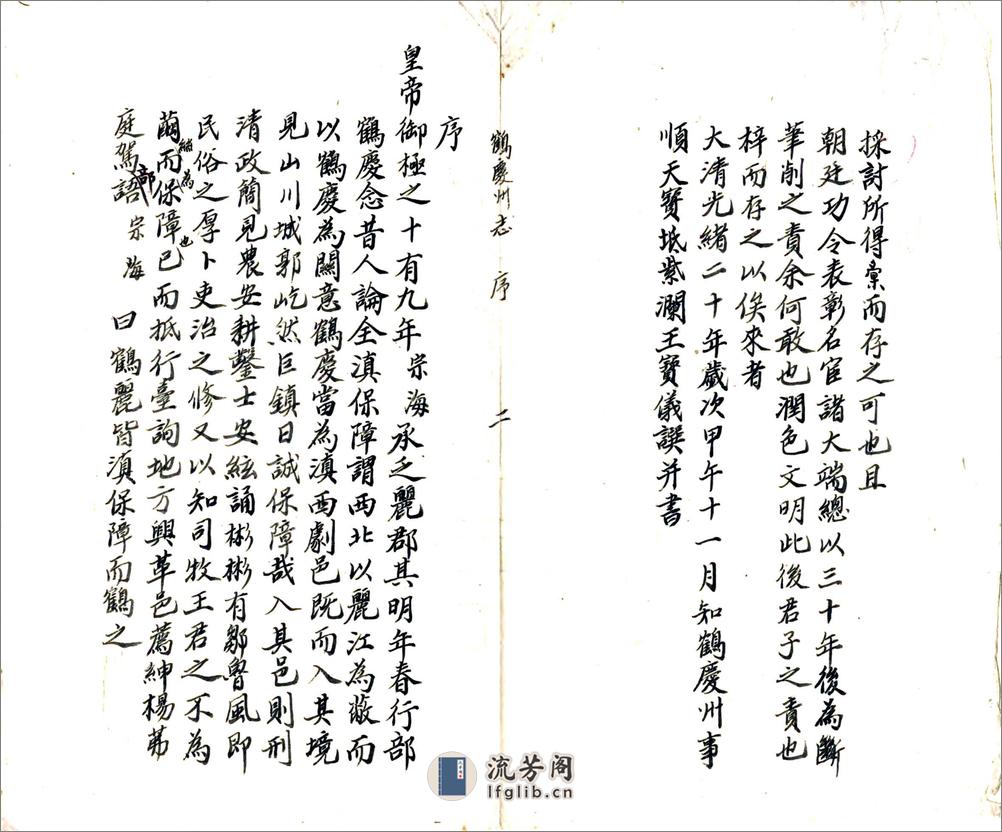 採討所得彙而存之可也且
朝廷功令表彰名宦諸大端總以三十年後為斷
筆削之責余何敢也潤色文明此後君子之責也
梓而存之以俟來者
大清光緒二十年歲次甲午十一月知鶴慶州事
順天寶坻紫瀾王寶儀譔并書
鶴慶州志 序 二
序
皇帝御極之十有九年宗海承乏麗郡其明年春行部
鶴慶念昔人論全滇保障謂西北以麗江為蔽而
以鶴慶為關意鶴慶當為滇西劇邑既而入其境
見山川城郭屹然巨鎮曰誠保障哉入其邑則刑
清政簡見農安耕鑿士安絃誦彬彬有鄒魯風即
民俗之厚卜吏治之修又以知司牧王君之不為
繭絲而為保障也已而抵行臺詢地方興革邑薦紳楊茀
庭駕部語宗海曰鶴麗皆滇保障而鶴之
流芳阁
lfglib.cn